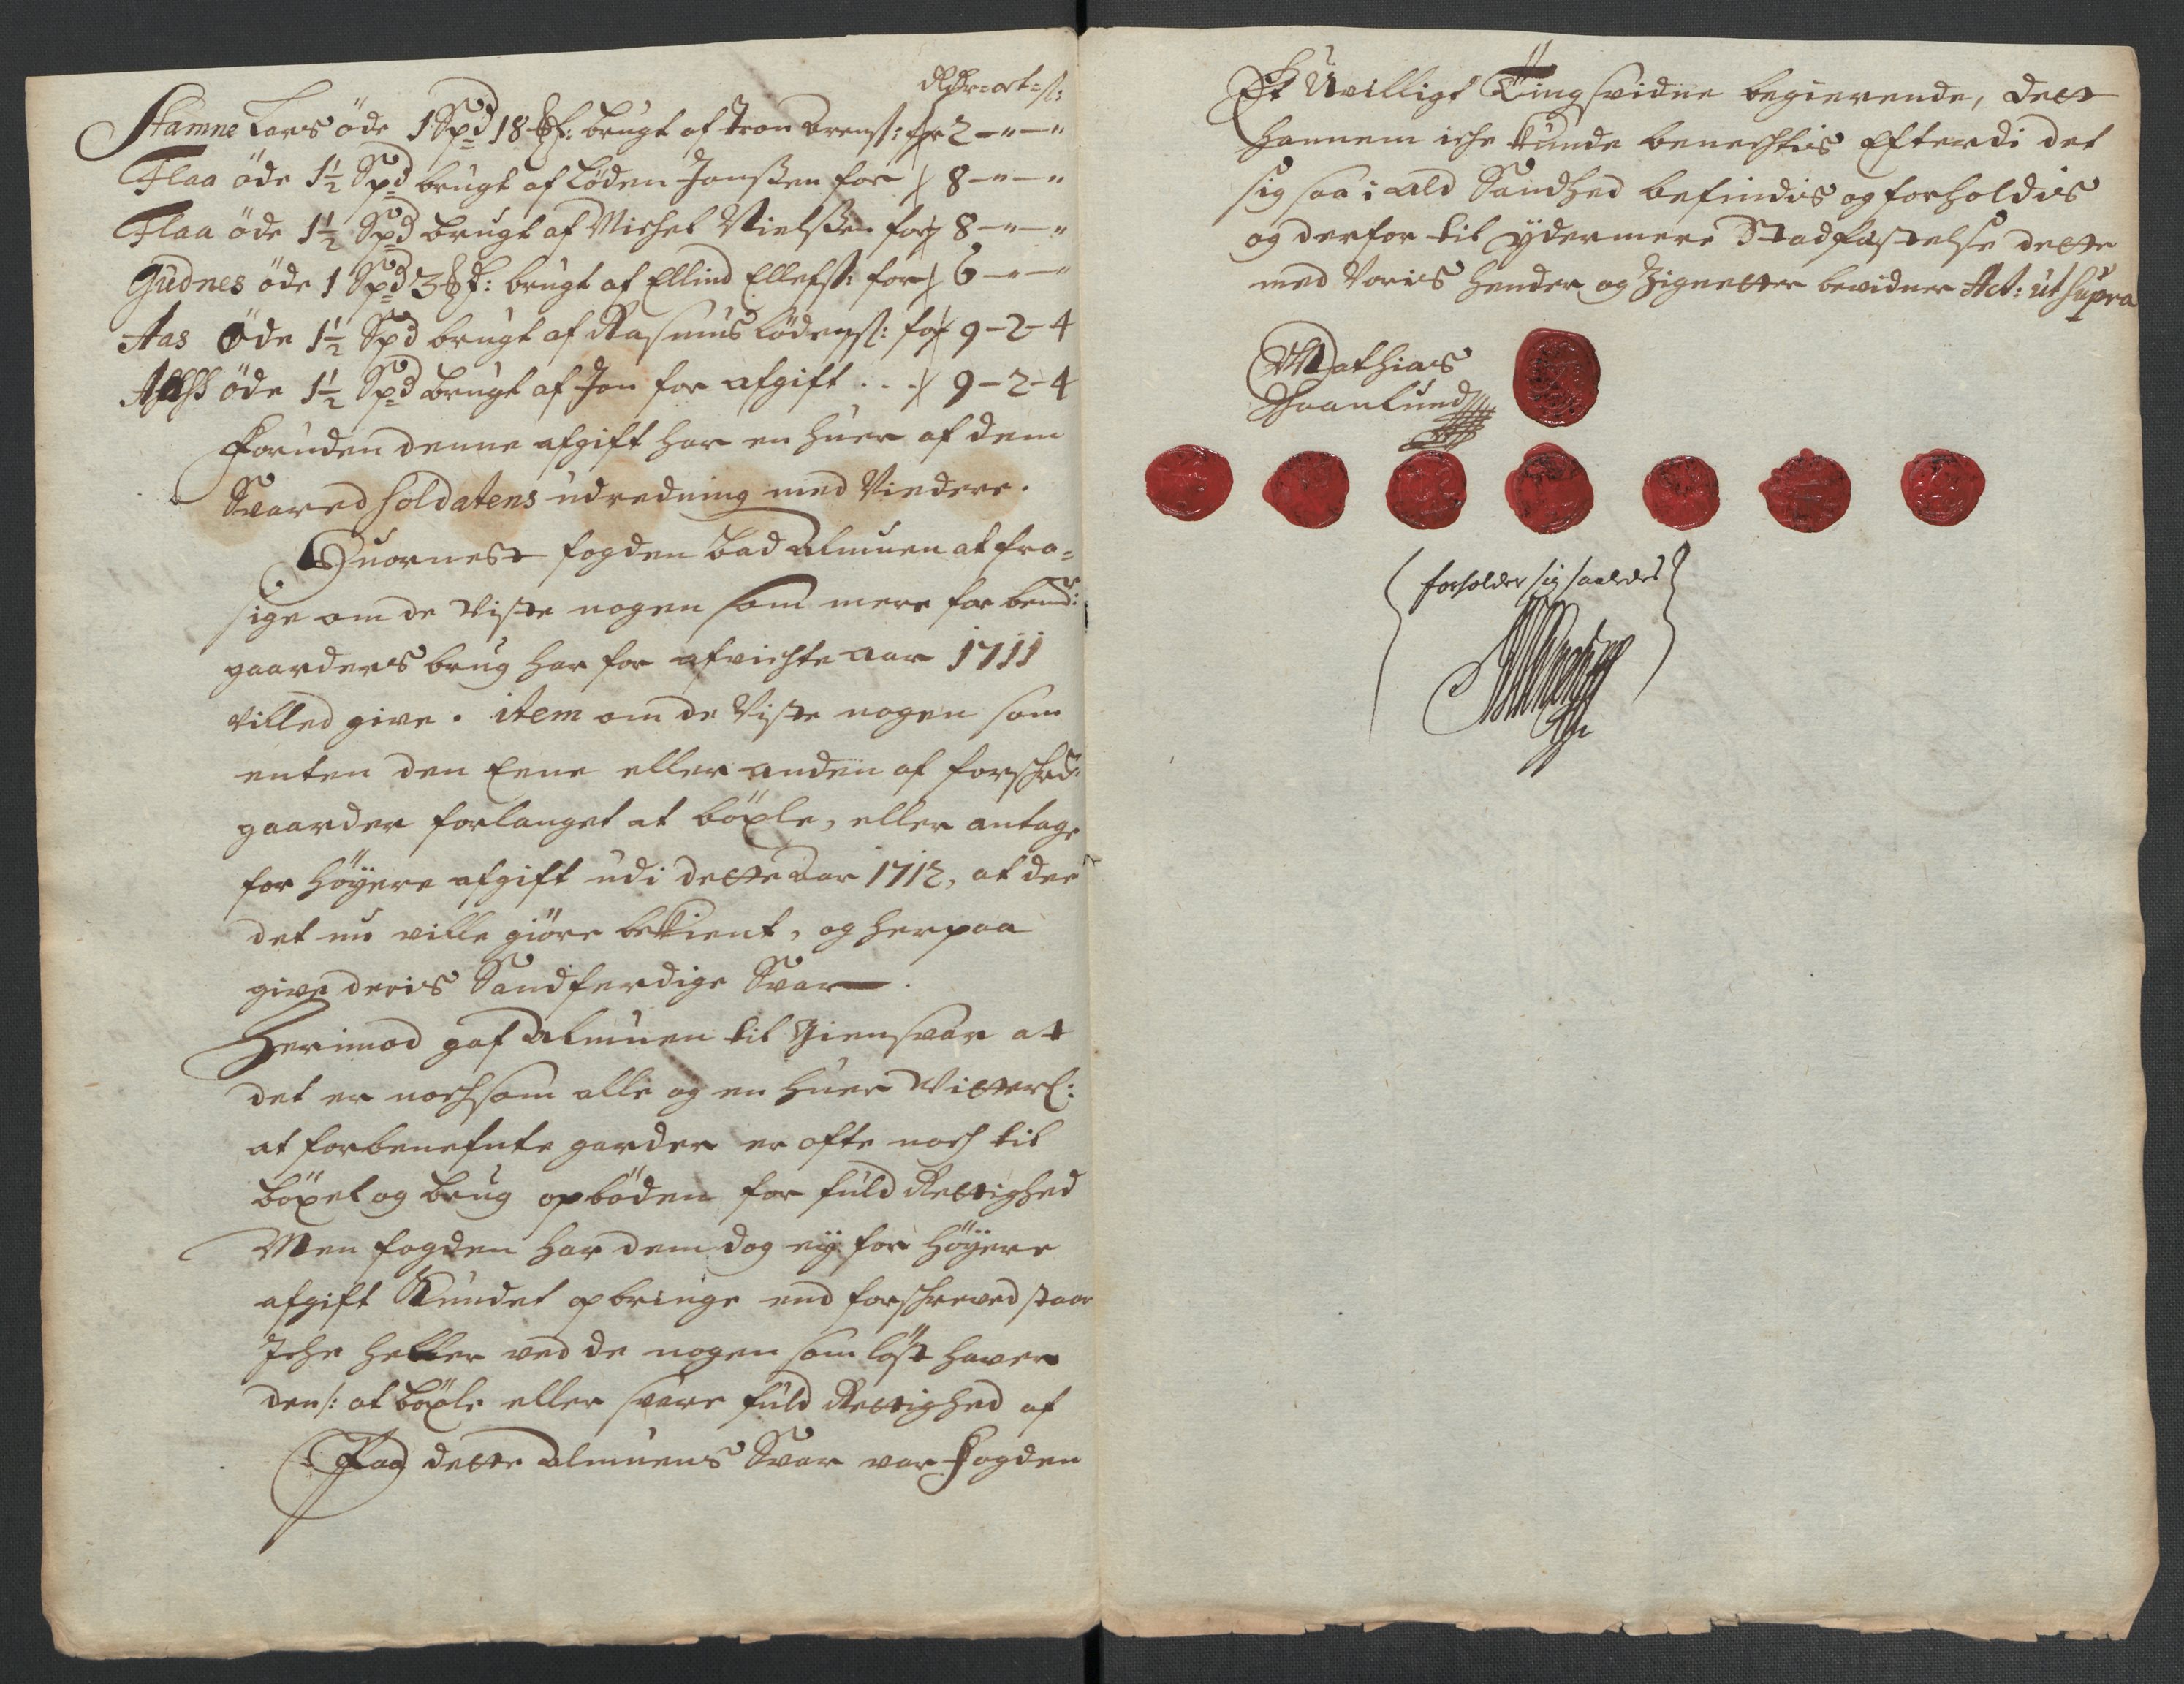 Rdr=ort=s:
Stamne Lars öde 1 Spd 18 mk: brugt af Iven Arens: for 2 – " – "
Flaa öde 1½ Spd brugt af Löden Jonsen for 8 – " – "
Flaa öde 1½ Spd brugt af Michel Nielsen for 8 – " – "
Gudnes öde 1 Spd 3 mk: brugt af Ellind Ellefs: for 6 – " – "
Aas öde 1½ Spd brugt af Rasmus Lödens: for 9 – 2 – 4
öde 1½ Spd brugt af Jon for afgift . . . 9 – 2 – 4
Foruden denne afgift har en huer af dem
Svared soldatens udredning med Videre.
Huornest fogden bad Almuen at fra=
sige om de viste nogen som mere for bemd:
gaarders brug har for afvichte aar 1711
villed give. item om de viste nogen som
enten den Eene eller anden af forschrd:
gaarder forlanget at böxle, eller antage
for höyere afgift udi dette Aar 1712, at de
det nu ville giöre bekient, og herpaa
give deris Sandferdige Svar.
Herimod gaf Almuen til Giensvar at
det er nochsom alle og en huer Vitterl:
at forbenefnte garder er ofte noch til
böxel og brug opböden for fuld Rettighed
Men fogden har dem dog ey for höyere
afgift Kundet opbringe end forschreved staar
Iche heller ved de nogen som löst haver
den: at böxle eller svare fuld Rettighed af
Paa dette Almuens Svar var Fogden
Et Uvilligt Tingsvidne begierende, dett
hannem iche kunde benechtis Efterdi det
sig saa i ald Sandhed befindis og forholdis
og derfor til ydermere Stadfæstelse dette
med Voris hender og Zignetter bevidner Act: ut supra
Mathias
forholder sig saaledes